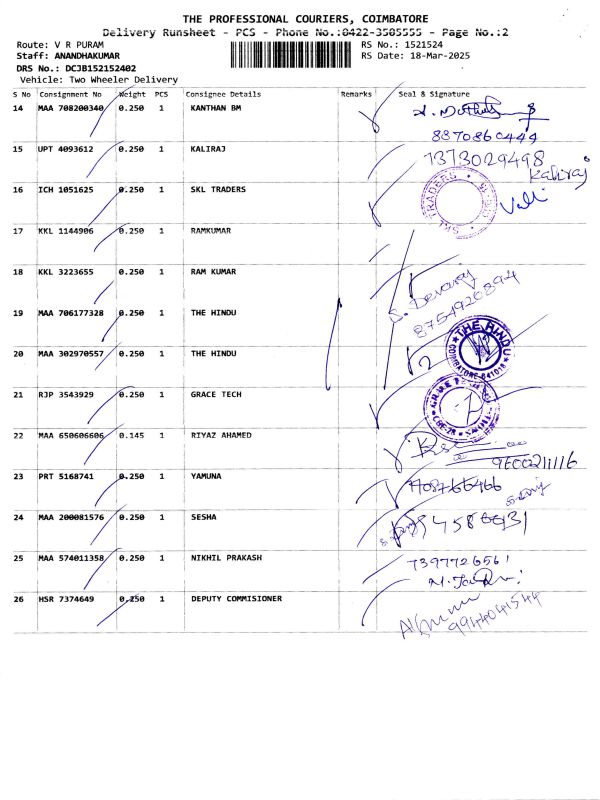 THE PROFESSIONAL COURIERS, COIMBATORE
Delivery Runsheet - PCS - Phone No.:0422-3505555 - Page No.:2
Route: V R PURAM
RS No.: 1521524
Staff: ANANDHAKUMAR
RS Date: 18-Mar-2025
DRS No.: DCJB152152402
Vehicle: Two Wheeler Delivery
S No Consignment No Weight PCS Consignee Details Remarks Seal & Signature
14 MAA 708200340 0.250 1 KANTHAN BM
8870860444
15 UPT 4093612 0.250 1 KALIRAJ
7373029498
Kaliraj
16 ICH 1051625 0.250 1 SKL TRADERS
SKL TRADERS
Valli
17 KKL 1144906 0.250 1 RAMKUMAR
18 KKL 3223655 0.250 1 RAM KUMAR
S. Devaraj
8754920894
19 MAA 706177328 0.250 1 THE HINDU
THE HINDU
COIMBATORE-641018
20 MAA 302970557 0.250 1 THE HINDU
21 RJP 3543929 0.250 1 GRACE TECH
22 MAA 650606606 0.145 1 RIYAZ AHAMED
9600211116
23 PRT 5168741 0.250 1 YAMUNA
24 MAA 200081576 0.250 1 SESHA
25 MAA 574011358 0.250 1 NIKHIL PRAKASH
7397726561
26 HSR 7374649 0.250 1 DEPUTY COMMISIONER
9944041544